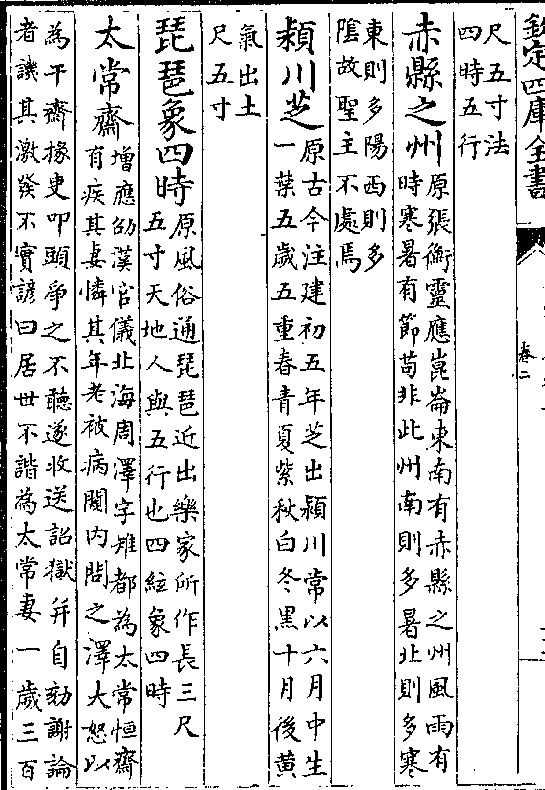 欽定四庫全書
卷二
尺五寸法
四時五行
赤縣之州 原張衡靈應崑崙東南有赤縣之州風雨有
時寒暑有節茍非此州南則多暑北則多寒
東則多陽西則多
陰故聖主不處焉
頴川芝 原古今注建初五年芝出頴川常以六月中生
一葉五歲五重春青夏紫秋白冬黑十月後黄
氣出土
尺五寸
琵琶象四時 原風俗通琵琶近出樂家所作長三尺
五寸天地人與五行也四絃象四時
太常齋 增應劭漢官儀北海周澤字稚都為太常恒齋
有疾其妻憐其年老被病闚内問之澤大怒以
為干齋掾吏叩頭爭之不聽遂收送詔獄并自劾謝論
者譏其激發不實諺曰居世不諧為太常妻一歲三百